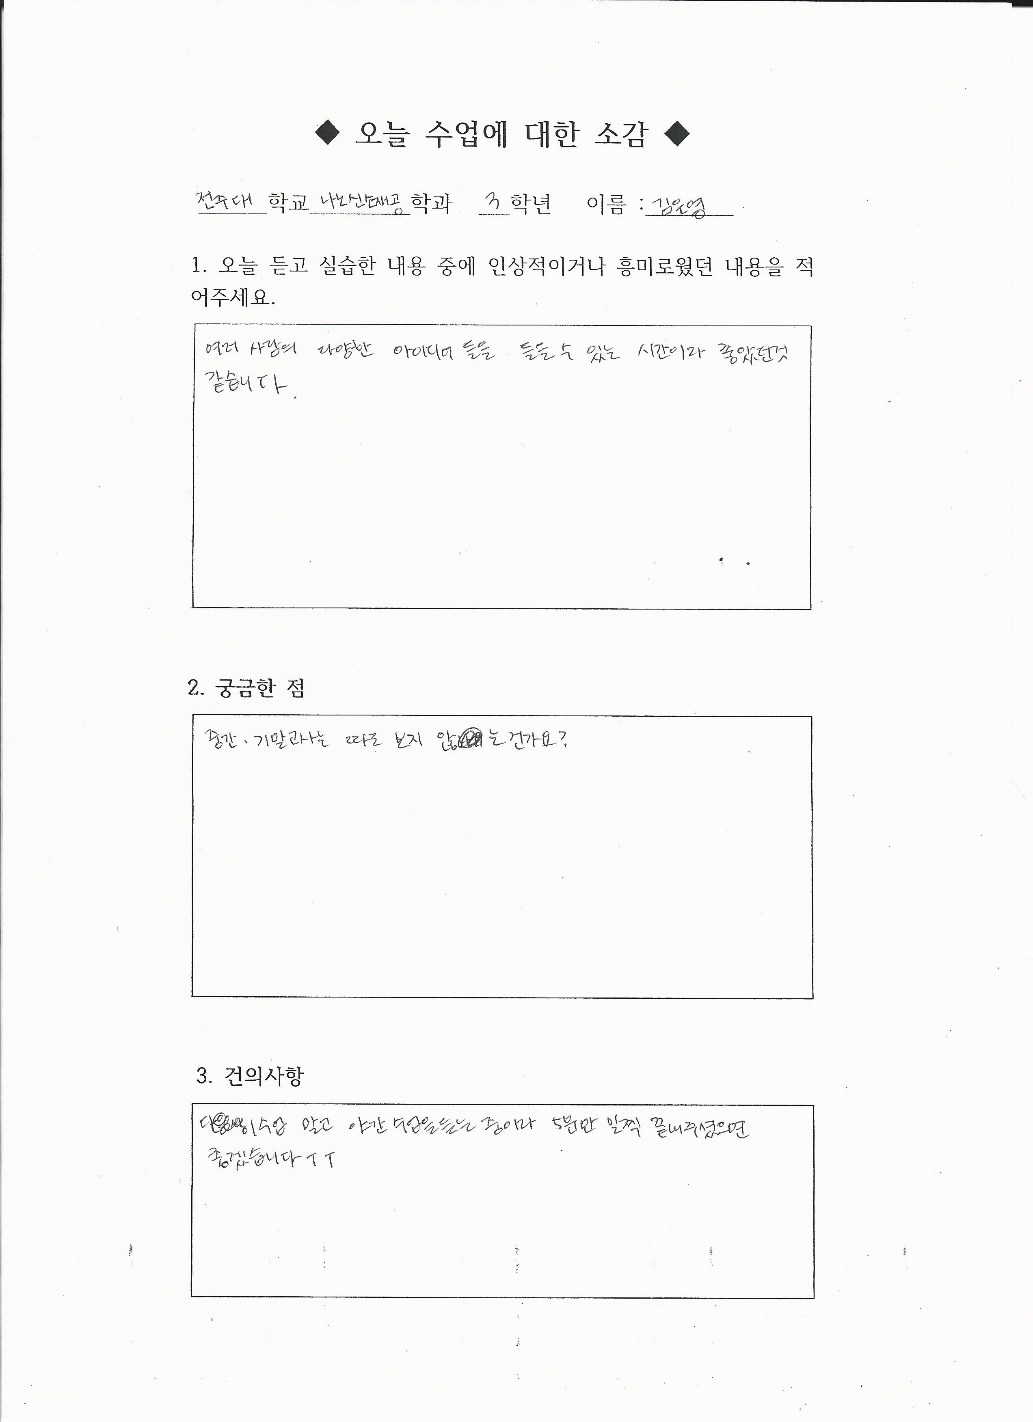 ◆ 오늘 수업에 대한 소감 ◆
전주대 학교 나노신소재공 학과 3 학년 이름 : 김은영
1. 오늘 듣고 실습한 내용 중에 인상적이거나 흥미로웠던 내용을 적
어주세요.
여러 사람의 다양한 아이디어 들을 들을 수 있는 시간이라 좋았던것
같습니다.
2. 궁금한 점
중간、기말고사는 따로 보지 않는건가요?
3. 건의사항
수업 말고 야간 수업을듣는 중이라 5분만 일찍 끝내주셨으면
좋겠습니다ㅜㅜ